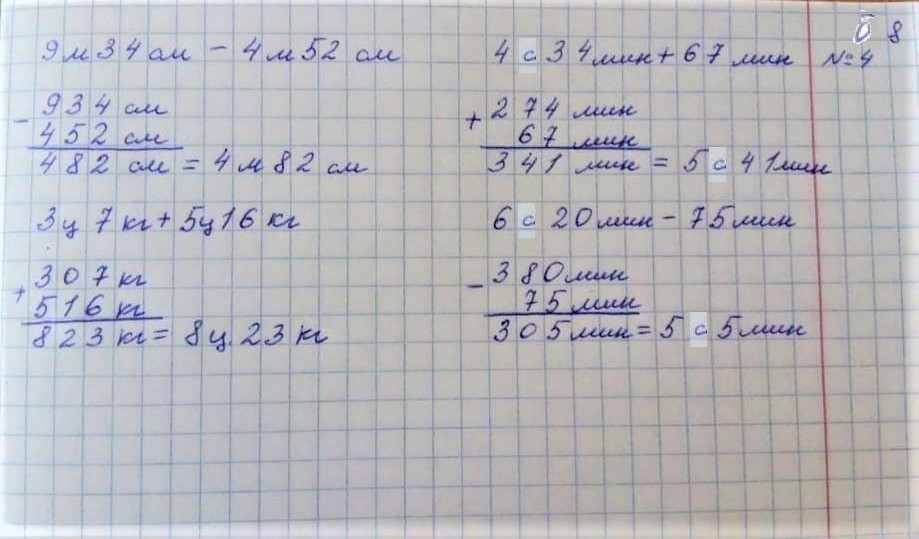 б 8
9 м 34 см - 4 м 52 см
4 с 34 мин + 67 мин
№ 4
- 934 см
452 см
482 см = 4 м 82 см
+ 274 мин
67 мин
341 мин = 5 с 41 мин
3 ц 7 кг + 5 ц 16 кг
6 с 20 мин - 75 мин
+ 307 кг
516 кг
823 кг = 8 ц 23 кг
- 380 мин
75 мин
305 мин = 5 с 5 мин